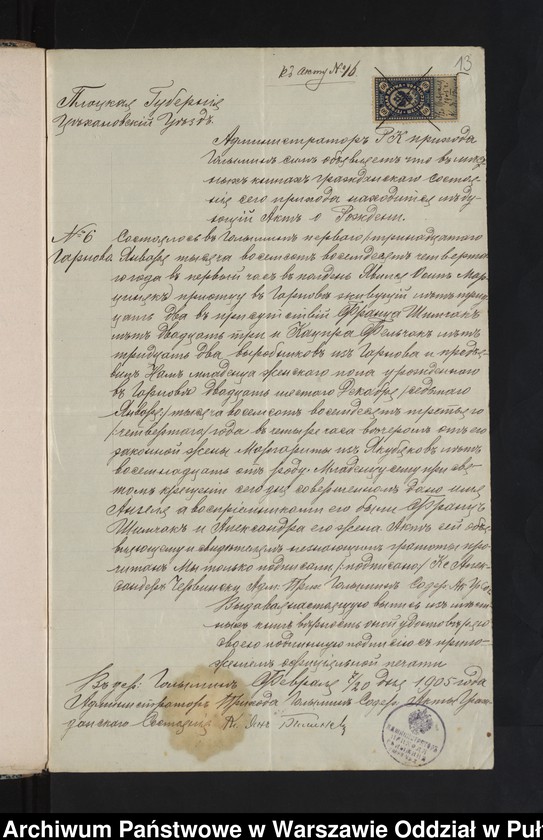 13
къ акту № 16
Плоцкая Губернія
Цѣхановскій Уѣздъ
Администраторъ Р К прихода
Голыминъ симъ объявляетъ что въ
книгахъ гражданскаго состоя-
нія сего прихода находится слѣду-
ющій Актъ о Рожденіи.
№ 6
Гарнова
Состоялось въ Голыминѣ перваго/тринадцатаго
Января тысяча восемсотъ восемдесятъ четверта
го года въ первый часъ въ полдень Явился
въ Гарновѣ живущій лѣтъ трид
цать два въ присутствіи Франца Шимчакъ
лѣтъ двадцать три и Кацпра лѣтъ
тридцать два выробниковъ изъ Гарнова и предъя-
вилъ Намъ младенца женскаго пола урожденнаго
въ Гарновѣ двадцать шестого Декабря/седьмаго
Января/тысяча восемсотъ восемдесятъ третьяго
/четвертаго/года въ четыре часа вечеромъ отъ его
законной жены Моргориты изъ Якубяковъ лѣтъ
восемнадцать отъ роду. Младенцу сему при свя-
томъ крещеніи сегодня совершенномъ дано имя
Ангеля а воспріемниками его были Францъ
Шимчакъ и Александра его жена Актъ сей объ
являющему и свидѣтелямъ незнающимъ грамоты про-
читанъ Мы только подписали/подписано/Кс Алек-
сандоръ Червинску Адм. Прих. Голыминъ Содер. Ак.
Выдавая настоящую выпись изъ
книгъ вѣрность оной удостовѣряю
своею подлинную подписью съ прило-
женіемъ оффиціальной печати
Въ дер: Голыминъ Февраля 7/20 дня 1905 года
Администраторъ Прихода Голыминъ Содер. Акты Граж-
данскаго Состоянія Кс. Янъ
Archiwum Państwowe w Warszawie Oddział w Puł